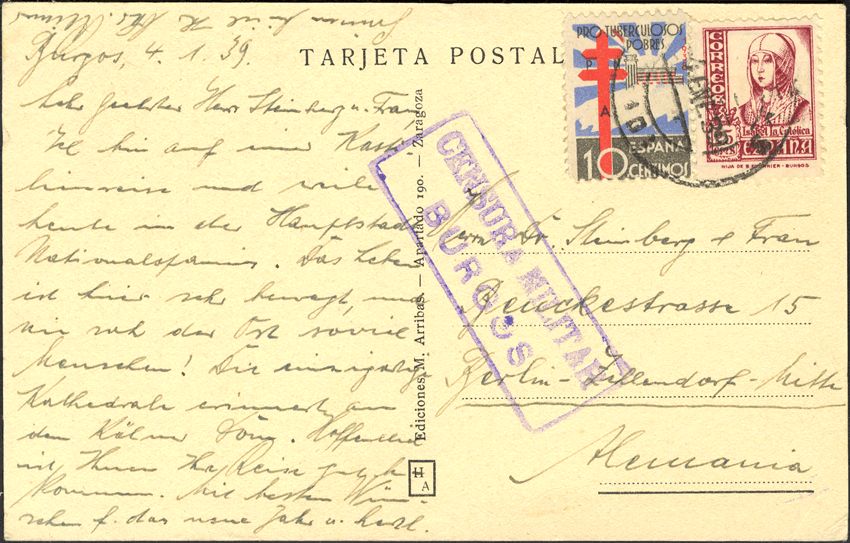 Burgos, 4.1.39.
Sehr geehrter Herr Steinberg u. Frau
Ich bin auf einer
und weile
heute in der Hauptstadt
Nationalspaniens. Das Leben
ist hier sehr bewegt, und
nie sah der Ort soviel
Menschen! Die einzigartige
Kathedrale erinnert an
den Kölner Dom. Hoffentlich
ist Ihnen Ihr Reise gut
bekommen. Mit besten Wün-
schen f. das neue Jahr u. herzl.
TARJETA POSTAL
Ediciones M. Arribas. — Apartado 190. — Zaragoza
HA
PRO TUBERCULOSOS
POBRES
ESPAÑA
10 CENTIMOS
CORREOS
Isabel la Católica
ESPAÑA
HIJA DE B. FOURNIER - BURGOS
CENSURA MILITAR
BURGOS
Herrn Dr. Steinberg & Frau
Beuckestrasse 15
Berlin-Zehlendorf-Mitte
Alemania